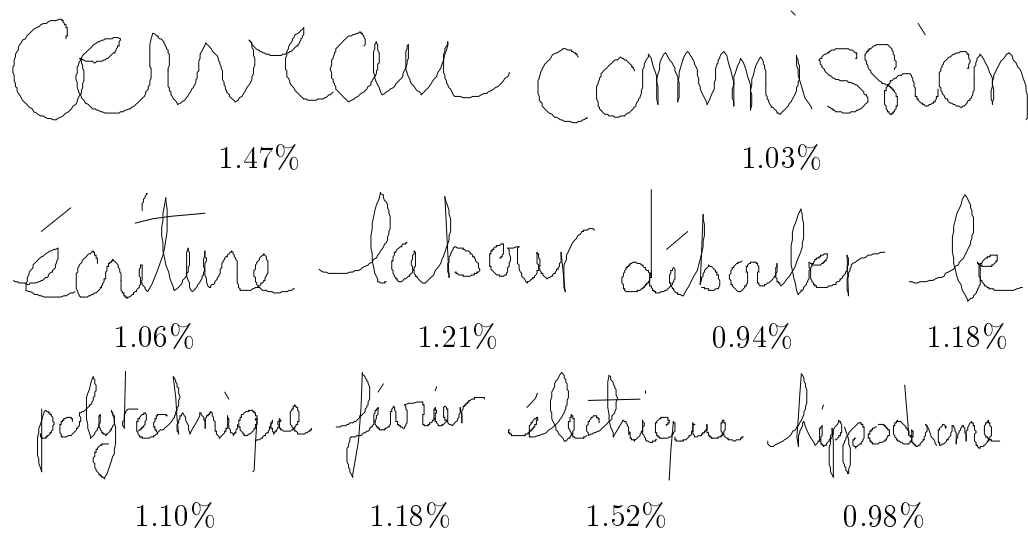 cerveau commission
1.47% 1.03%
écriture labour débouler le
1.06% 1.21% 0.94% 1.18%
polytechnique février électrique hippodrome
1.10% 1.18% 1.52% 0.98%